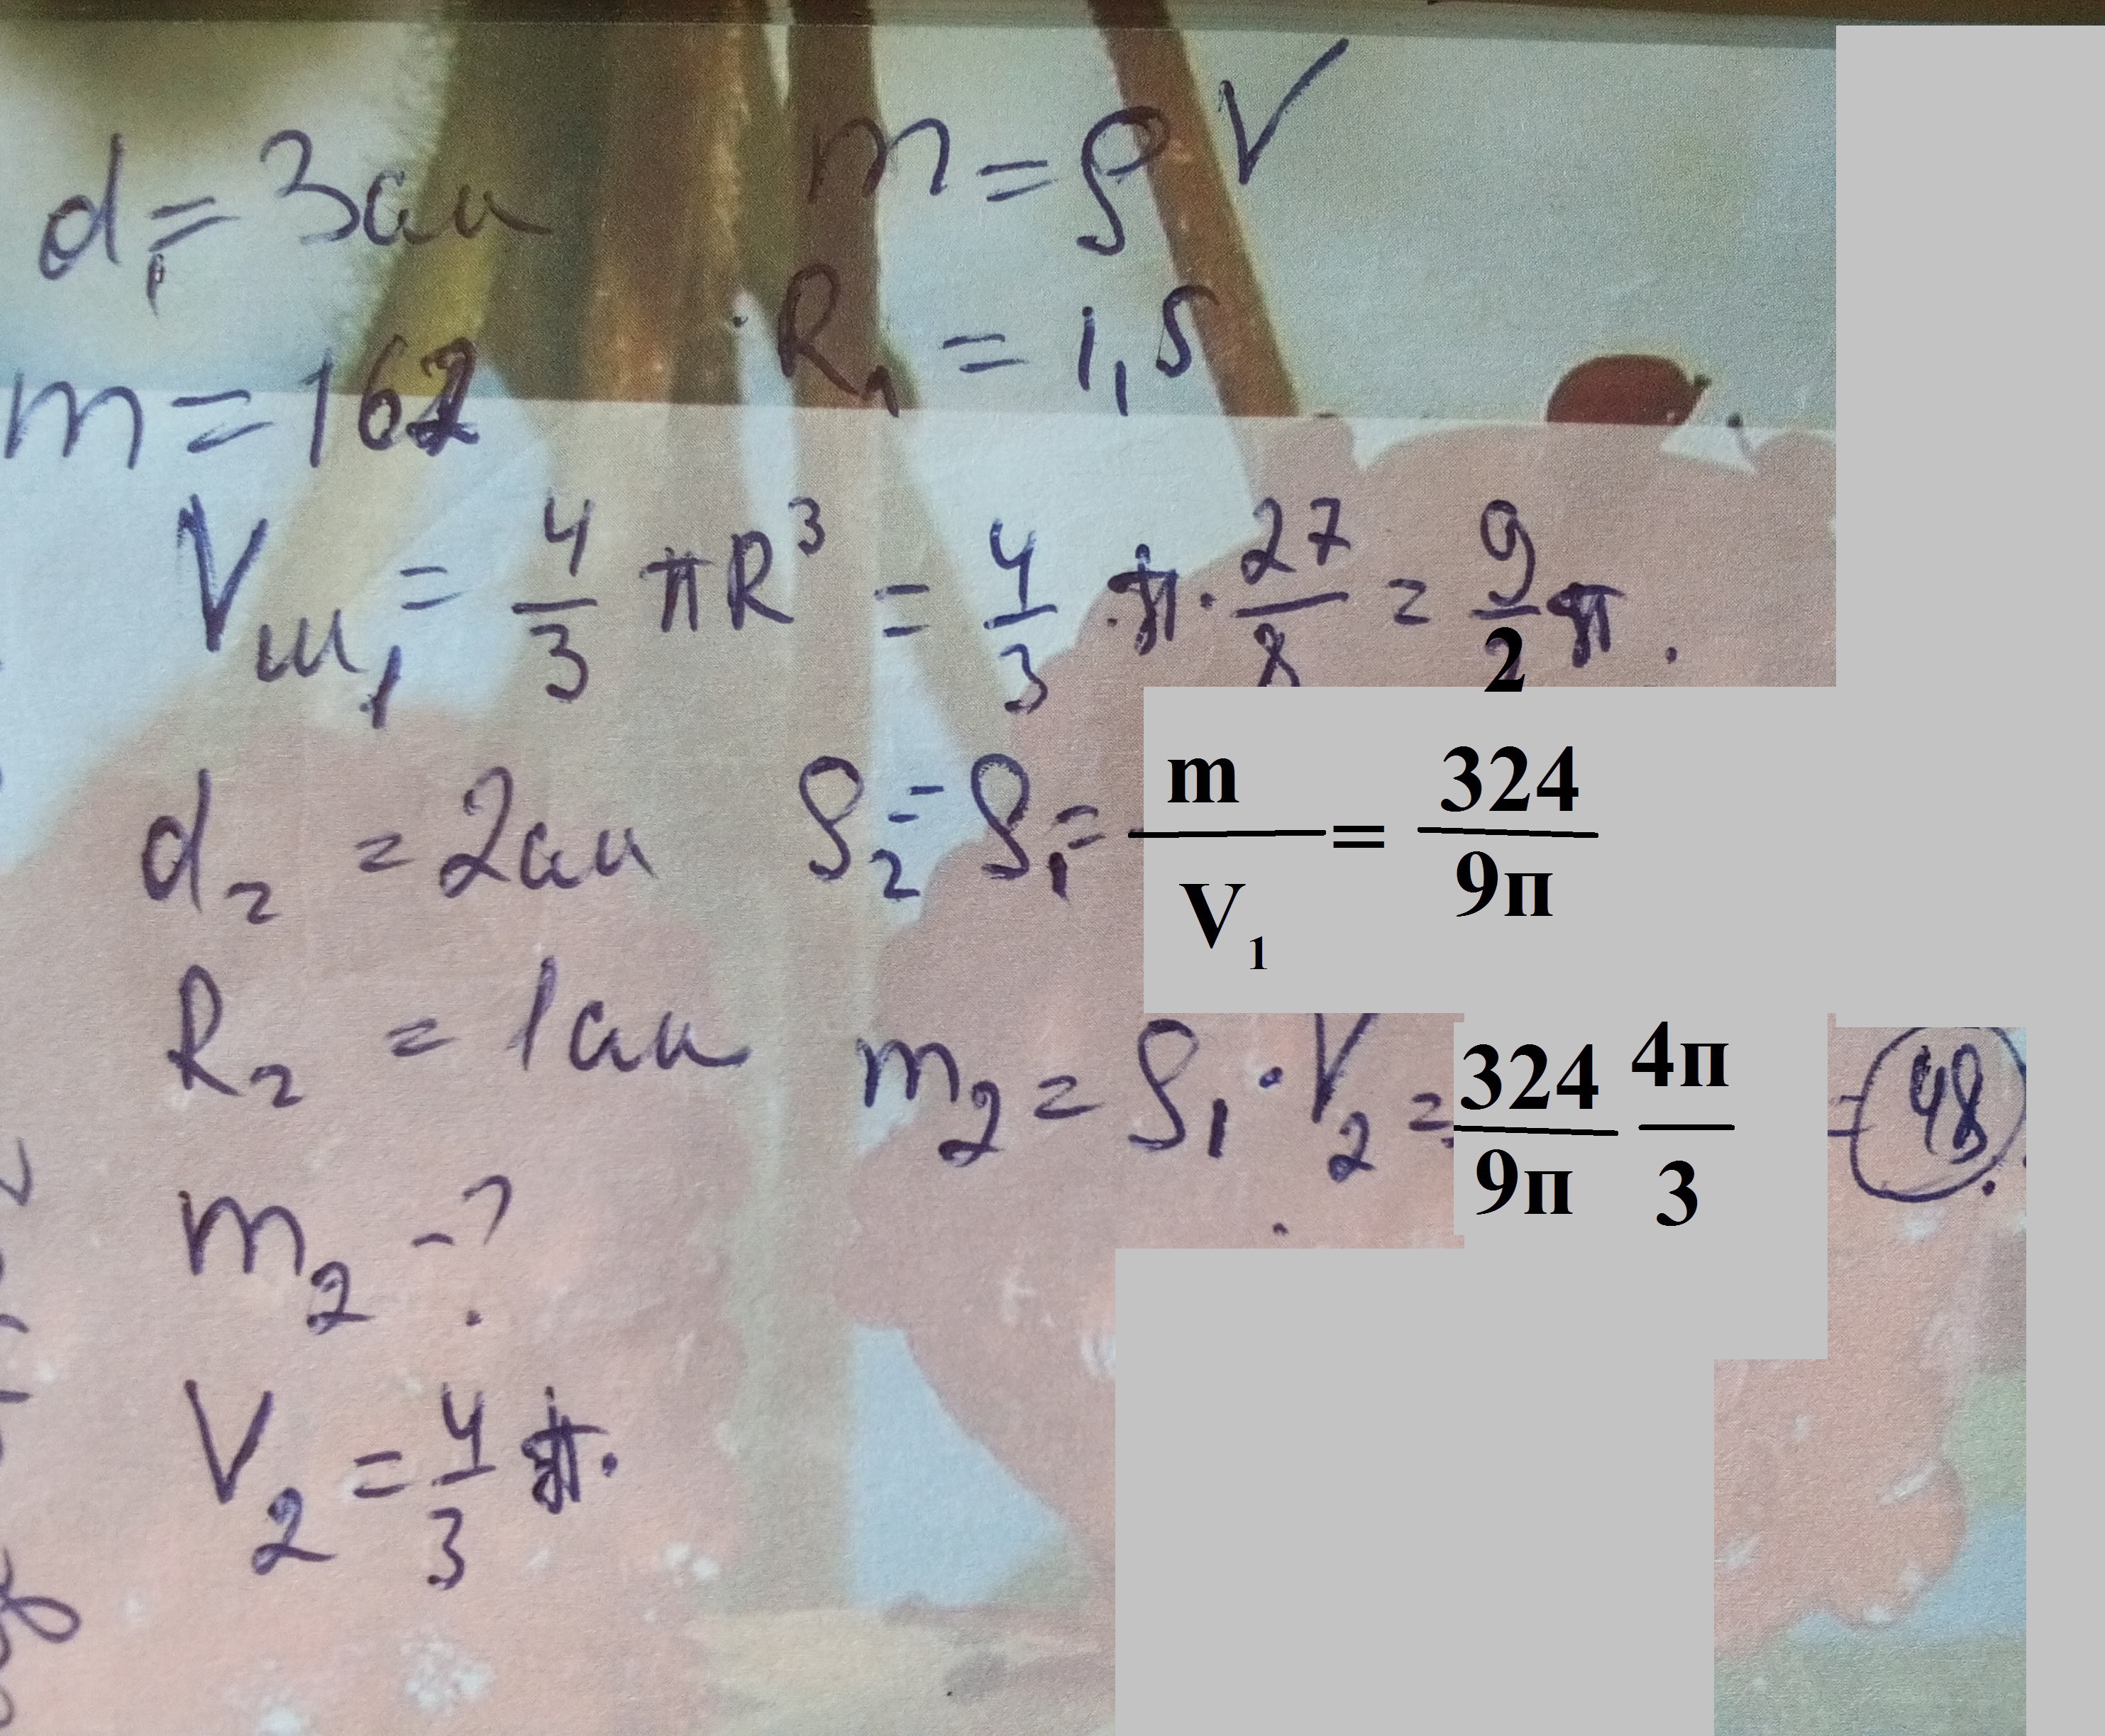 d₁ = 3см
m = ρV
R₁ = 1,5
m = 162
Vш₁ = 4/3 πR³ = 4/3 · π · 27/8 = 9/2 π.
d₂ = 2см
ρ₂ = ρ₁ = m/V₁ = 324/9п
R₂ = 1см
m₂ = ρ₁ · V₂ = 324/9п 4п/3 = 48.
m₂ - ?
V₂ = 4/3 π.